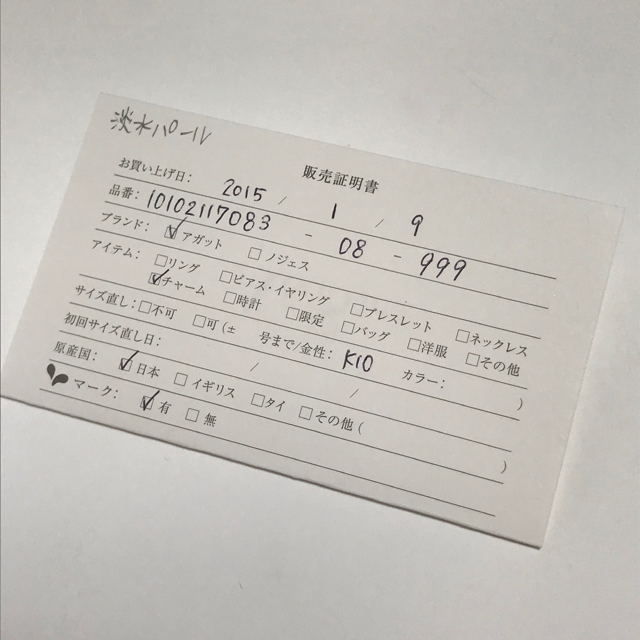 淡水パール
販売証明書
お買い上げ日: 2015 / 1 / 9
品番: 10102117083 - 08 - 999
ブランド: ☑アガット □ノジェス
アイテム: □リング □ピアス・イヤリング □ブレスレット □ネックレス
☑チャーム □時計 □限定 □バッグ □洋服 □その他
サイズ直し: □不可 □可(± 号まで/金性: K10 カラー: )
初回サイズ直し日: / /
原産国: ☑日本 □イギリス □タイ □その他( )
マーク: ☑有 □無